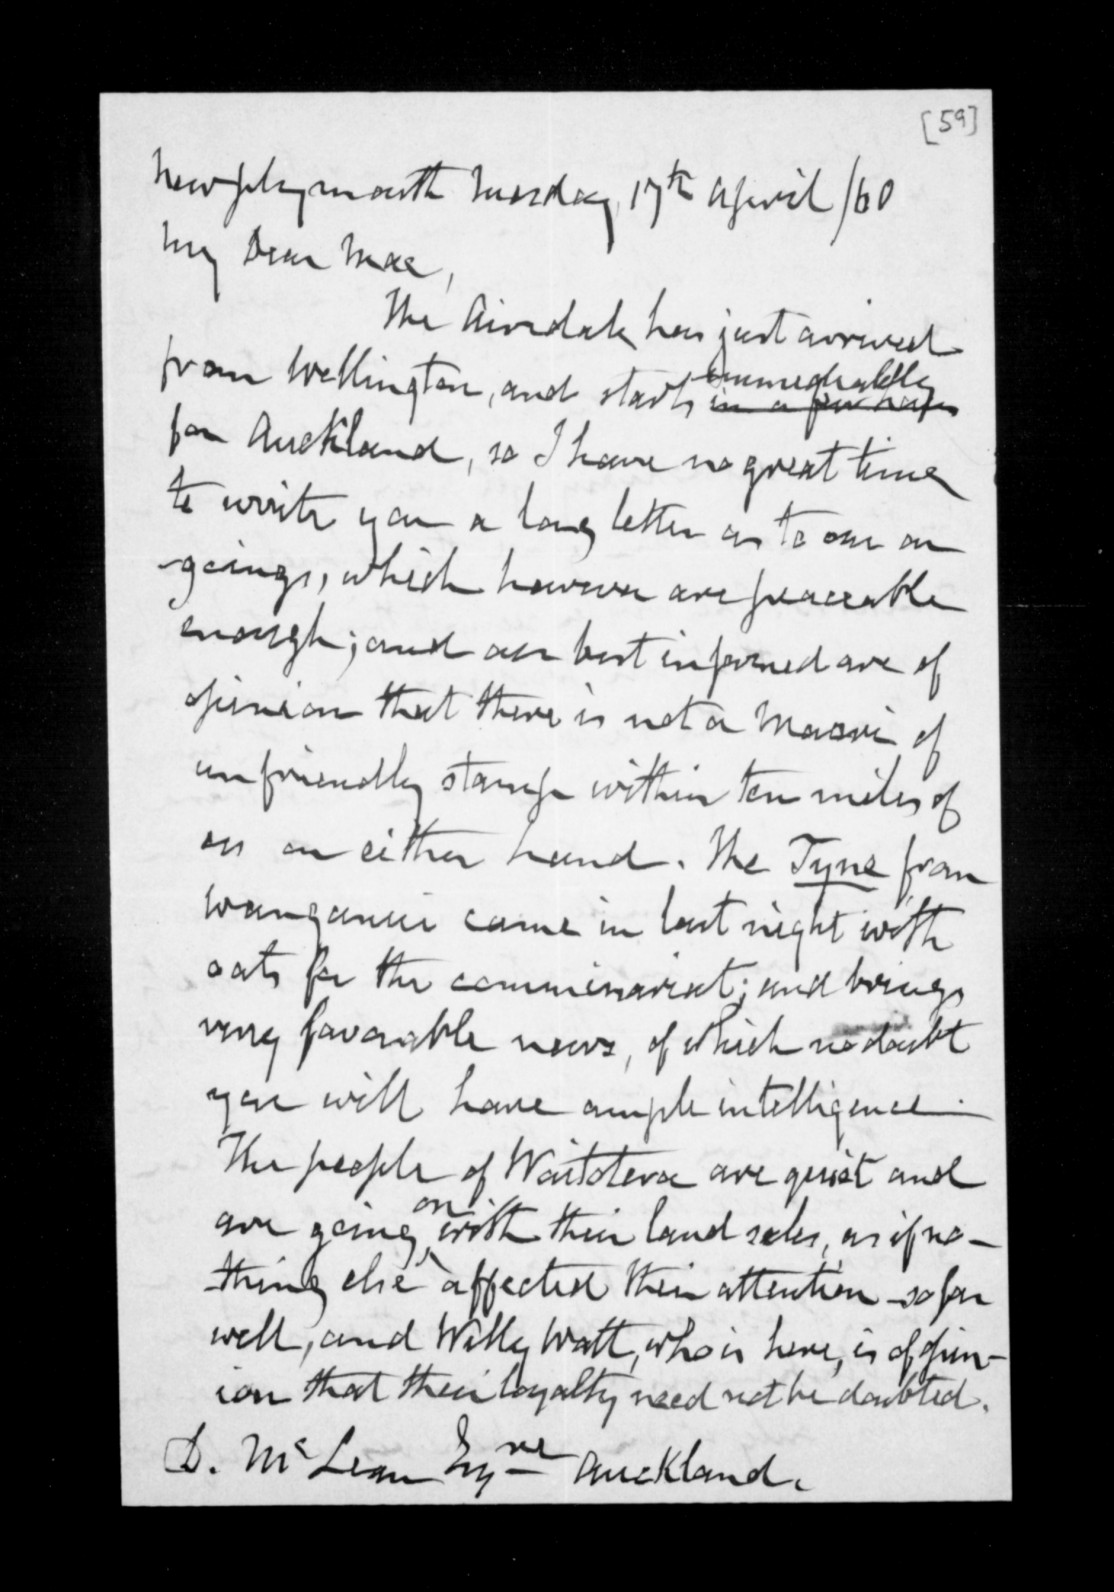 [59]
New plymouth Tuesday, 17th April /60
My Dear Mac,
The Airedale has just arrived
from Wellington, and starts immediately in a few hours
for Auckland, so I have no great time
to write you a long letter as to our on
-goings, which however are peaceable
enough; and our best informed are of
opinion that there is not a Maori of
unfriendly stamp within ten miles of
us on either hand. The Tyne from
Wanganui came in last night with
oats for the commissariat; and brings
very favorable news, of which no doubt
you will have ample intelligence.
The people of Waitotera are quiet and
are going on with their land sales, as if no-
thing else affected their attention - so far
well, and Willy Watt, who is here, is of opin-
ion that their loyalty need not be doubted.
D. McLean Esqre Auckland.